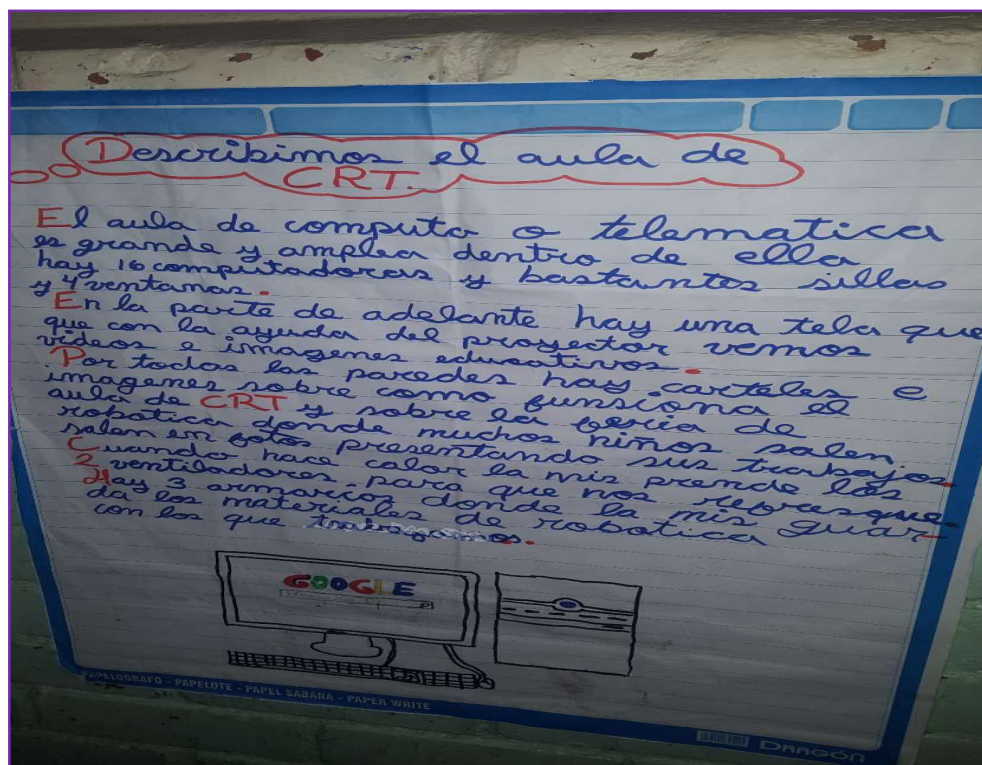 Describimos el aula de
CRT.
El aula de computo o telematica
es grande y amplea dentro de ella
hay 16 computadoras y bastantes sillas
y 4 ventanas.
En la parte de adelante hay una tela que
que con la ayuda del proyector vemos
videos e imagenes educativos.
Por todas las paredes hay carteles e
imagenes sobre como funsiona el
aula de CRT y sobre la feria de
robotica donde muchos niños salen
salen en fotos presentando sus trabajos.
Cuando hace calor la mis prende los
2 ventiladores para que nos refresque.
Hay 3 armarios donde la mis guar-
da los materiales de robotica
con los que trabajamos.
GOOGLE
PAPELOGRAFO - PAPELOTE - PAPEL SABANA - PAPER WRITE
DRAGÓN